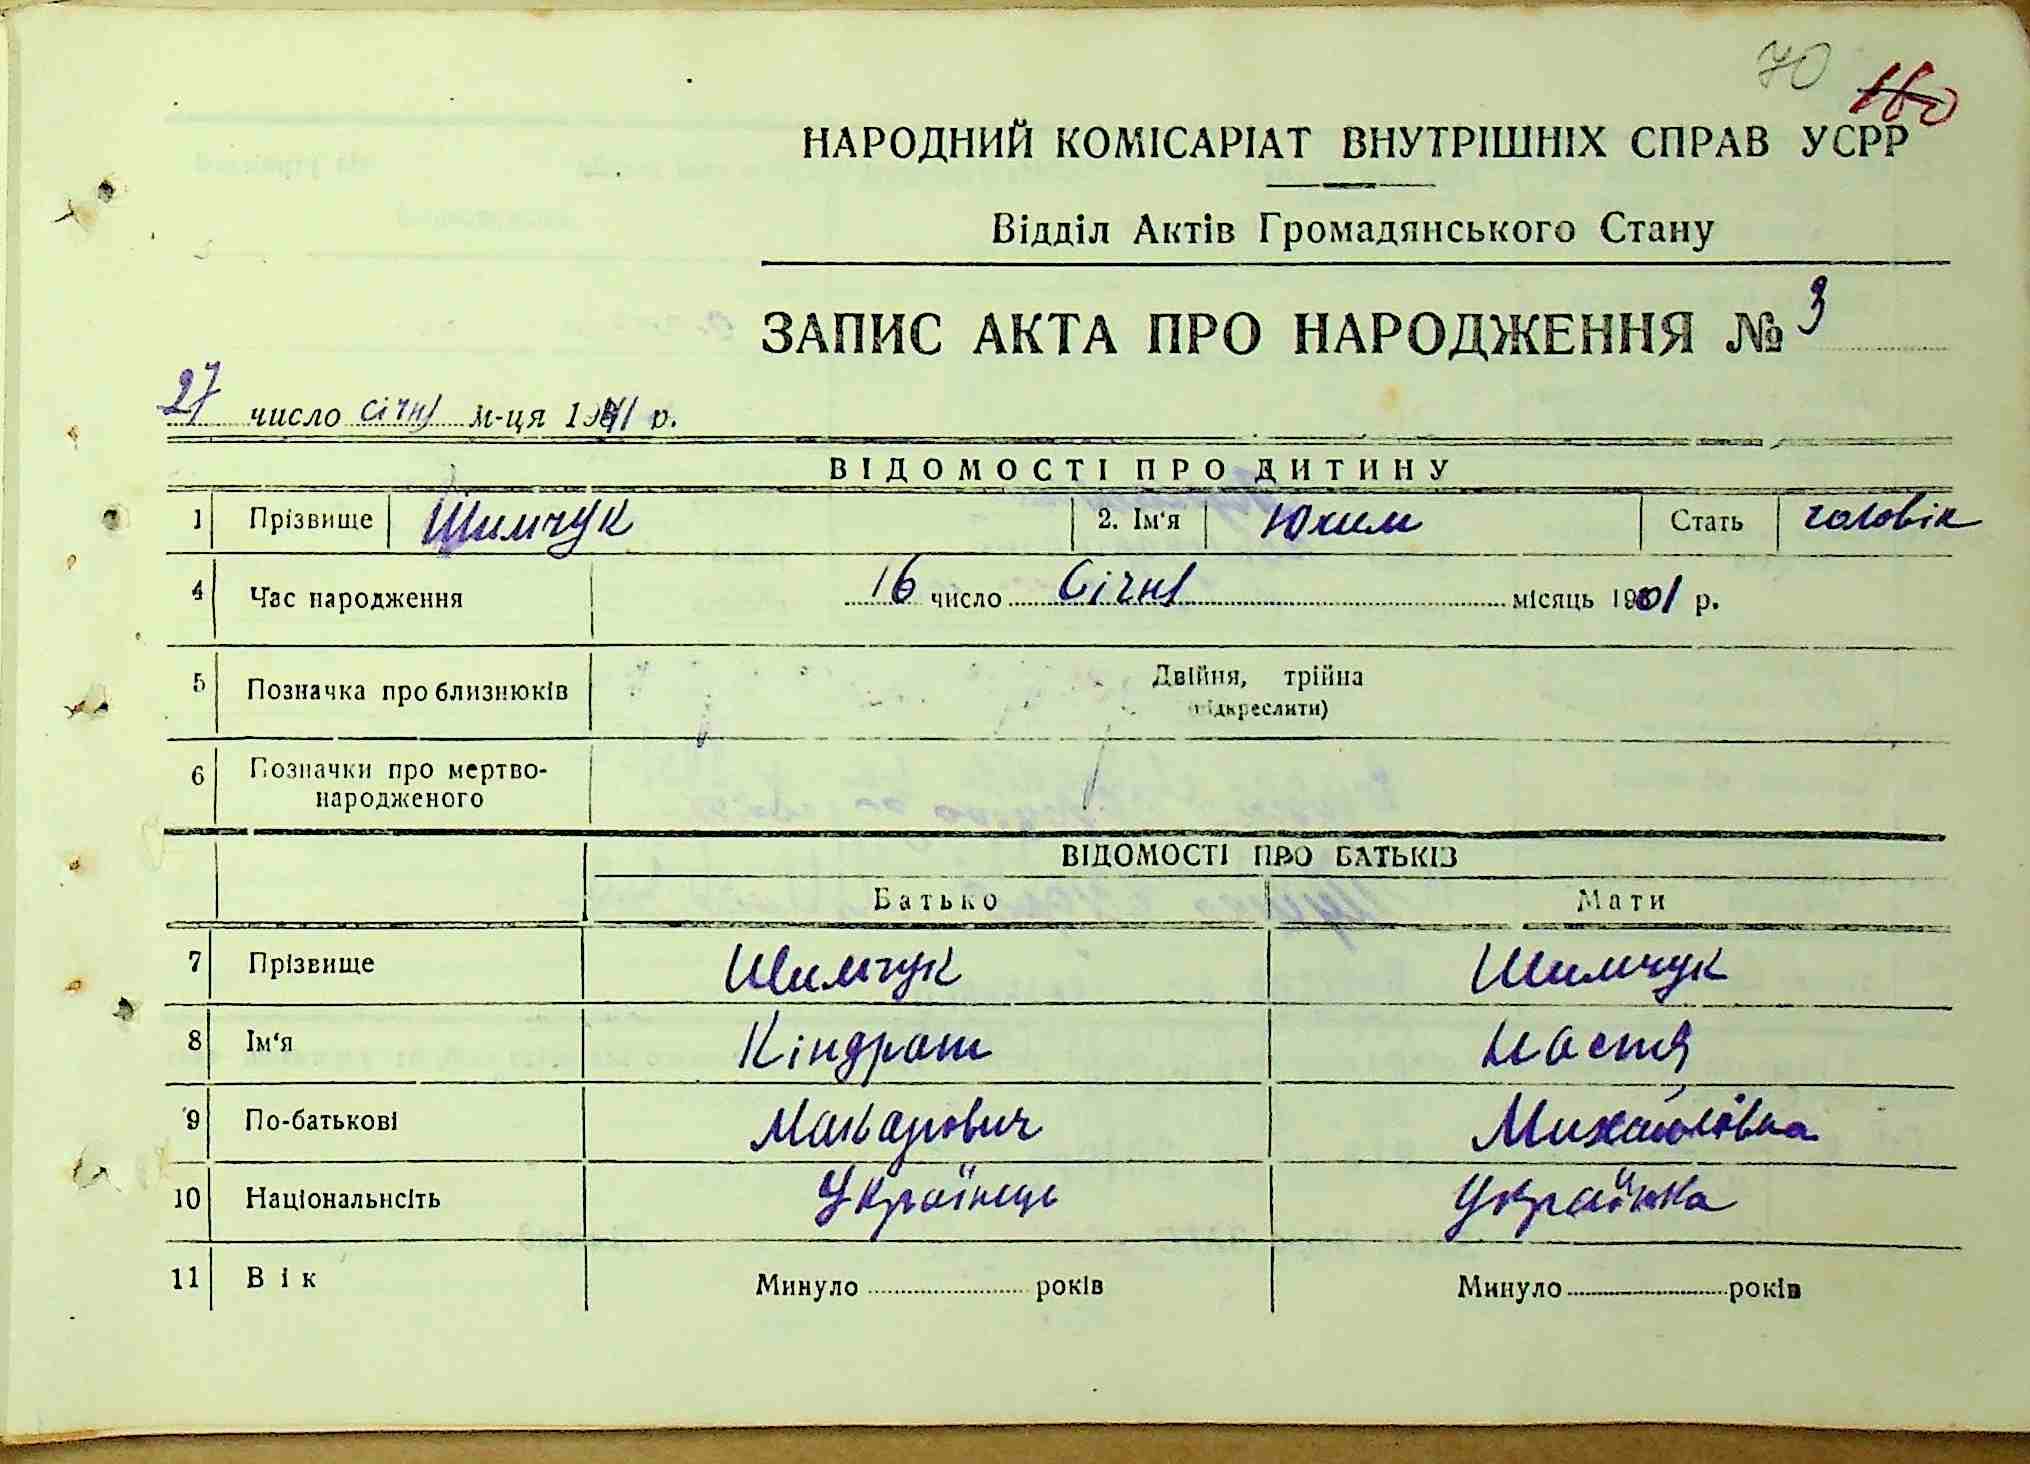 70 160
НАРОДНИЙ КОМІСАРІАТ ВНУТРІШНІХ СПРАВ УСРР
Відділ Актів Громадянського Стану
ЗАПИС АКТА ПРО НАРОДЖЕННЯ № 3
27 число січня м-ця 1941 р.
ВІДОМОСТІ ПРО ДИТИНУ
1 Прізвище Шимчук 2. Ім'я Юхим Стать чоловік
4 Час народження 16 число Січня місяць 1901 р.
5 Позначка про близнюків Двійня, трійна
(підкреслити)
6 Позначки про мертво-
народженого
ВІДОМОСТІ ПРО БАТЬКІВ
Батько Мати
7 Прізвище Шимчук Шимчук
8 Ім'я Кіндрат Настя
9 По-батькові Макарович Михайлівна
10 Національнсіть Українець Українка
11 Вік Минуло років Минуло років